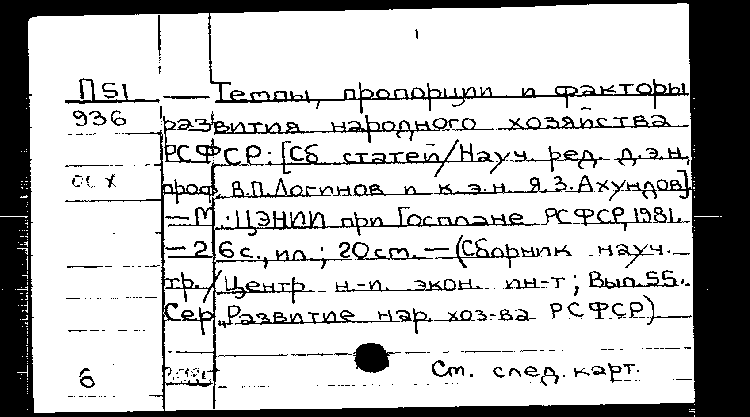 П51 — Темпы, пропорции и факторы
936 развития народного хозяйства
РСФСР: [Сб статей/Науч. ред. д.э.н,
проф. В.П.Логинов и к.э.н. Я.З.Ахундов].
— М.: ЦЭНИИ при Госплане РСФСР, 1981.
— 26с., ил.; 20см. — (Сборник науч.
тр./Центр. н-и. экон. ин-т; Вып.55.
Сер. „Развитие нар. хоз-ва РСФСР)
6 См. след. карт.